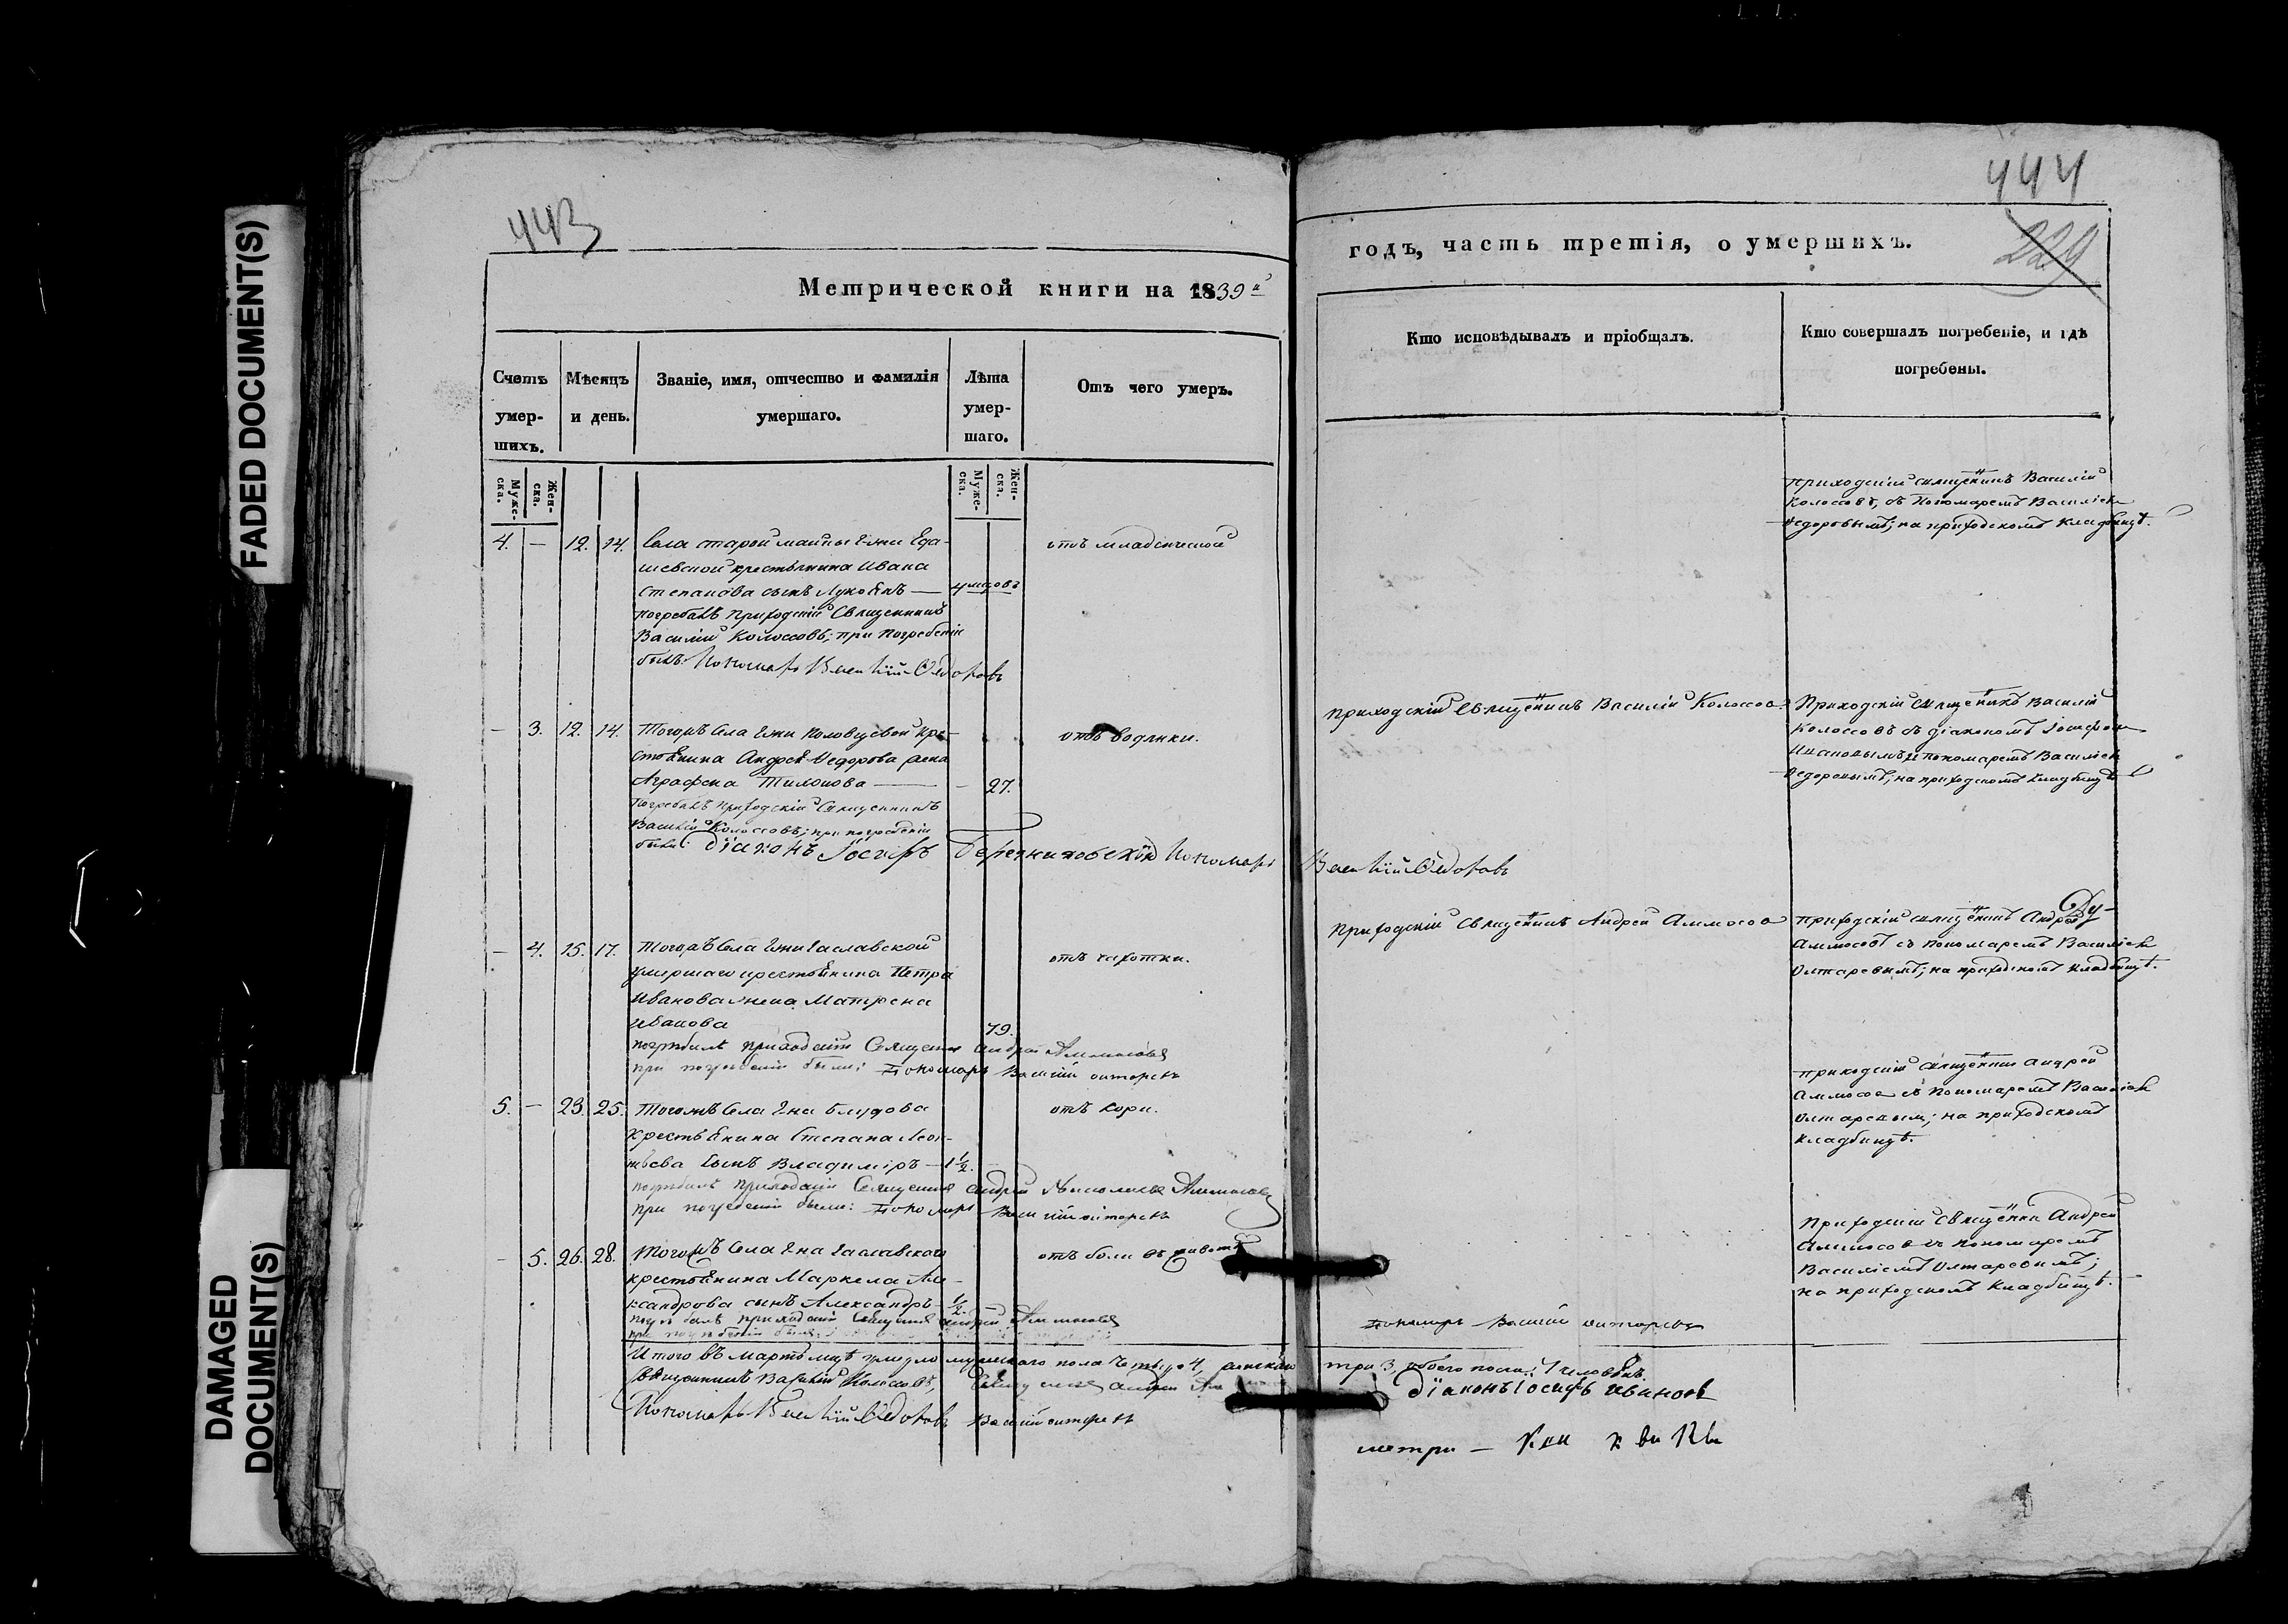 FADED DOCUMENT(S)
DAMAGED
DOCUMENT(S)
443
Метрической книги на 1839й
Счетъ
умер-
шихъ.
Мѣсяцъ
и день.
Званіе, имя, отчество и фамилія
умершаго.
Лѣта
умер-
шаго.
Отъ чего умеръ.
Муже-
ска.
Жен-
ска.
Муже-
ска.
Жен-
ска.
4. — 12. 14. Села старой
крестьянина Ивана
Степанова сынъ — 4
отъ младенческой
погребалъ приходскій Священникъ
Василій Колоссовъ, при погребеніи
былъ: Пономарь Василій Ѳедоровъ
— 3. 12. 14. Тогожъ села
Андрея Ѳедорова жена
Аграфена — 27.
отъ водянки.
Погребалъ приходскій Священникъ
Василій Колоссовъ, при погребеніи
были: діаконъ Іосифъ Пономарь Василій Ѳедоровъ
— 4. 15. 17. Тогожъ села
умершаго крестьянина Петра
Иванова жена Матрена
Иванова 79.
отъ чахотки.
погребалъ приходскій Священникъ Андрей Аммосовъ
при погребеніи были: Пономарь Василій
5. — 23. 25. Тогожъ села
крестьянина Степана Леон-
тьева сынъ Владиміръ — 1½.
отъ кори.
погребалъ приходскій Священникъ Андрей Аммосовъ
при погребеніи были: Пономарь Василій
— 5. 26. 28. Тогожъ села
крестьянина Маркела Але-
ксандрова сынъ Александръ ½.
отъ боли въ животѣ
погребалъ приходскій Священникъ Андрей Аммосовъ
Пономарь Василій
Итого въ мартѣ умерло мужескаго пола четыре 4, женскаго три 3, обоего пола 7 человѣкъ.
Священникъ Василій Колоссовъ, Священникъ Андрей
діаконъ Іосифъ Ивановъ
Пономарь Василій Ѳедоровъ Василій
444
229
годъ, часть третія, о умершихъ.
Кто исповѣдывалъ и пріобщалъ.
Кто совершалъ погребеніе, и гдѣ
погребены.
приходскій священникъ Василій
Колоссовъ, съ Пономаремъ Василіемъ
Ѳедоровымъ; на приходскомъ кладбищѣ.
приходскій священникъ Василій Колоссовъ
Приходскій священникъ Василій
Колоссовъ съ діакономъ Іосифомъ
Ивановымъ и пономаремъ Василіемъ
Ѳедоровымъ; на приходскомъ кладбищѣ
Приходскій священникъ Андрей Аммосовъ
приходскій священникъ Андрей
Аммосовъ съ пономаремъ Василіемъ
Олтаревымъ; на приходскомъ кладбищѣ.
приходскій священникъ Андрей
Аммосовъ съ пономаремъ Василіемъ
Олтаревымъ; на приходскомъ
кладбищѣ.
Приходскій священникъ Андрей
Аммосовъ съ пономаремъ
Василіемъ Олтаревымъ;
на приходскомъ кладбищѣ.
метри —